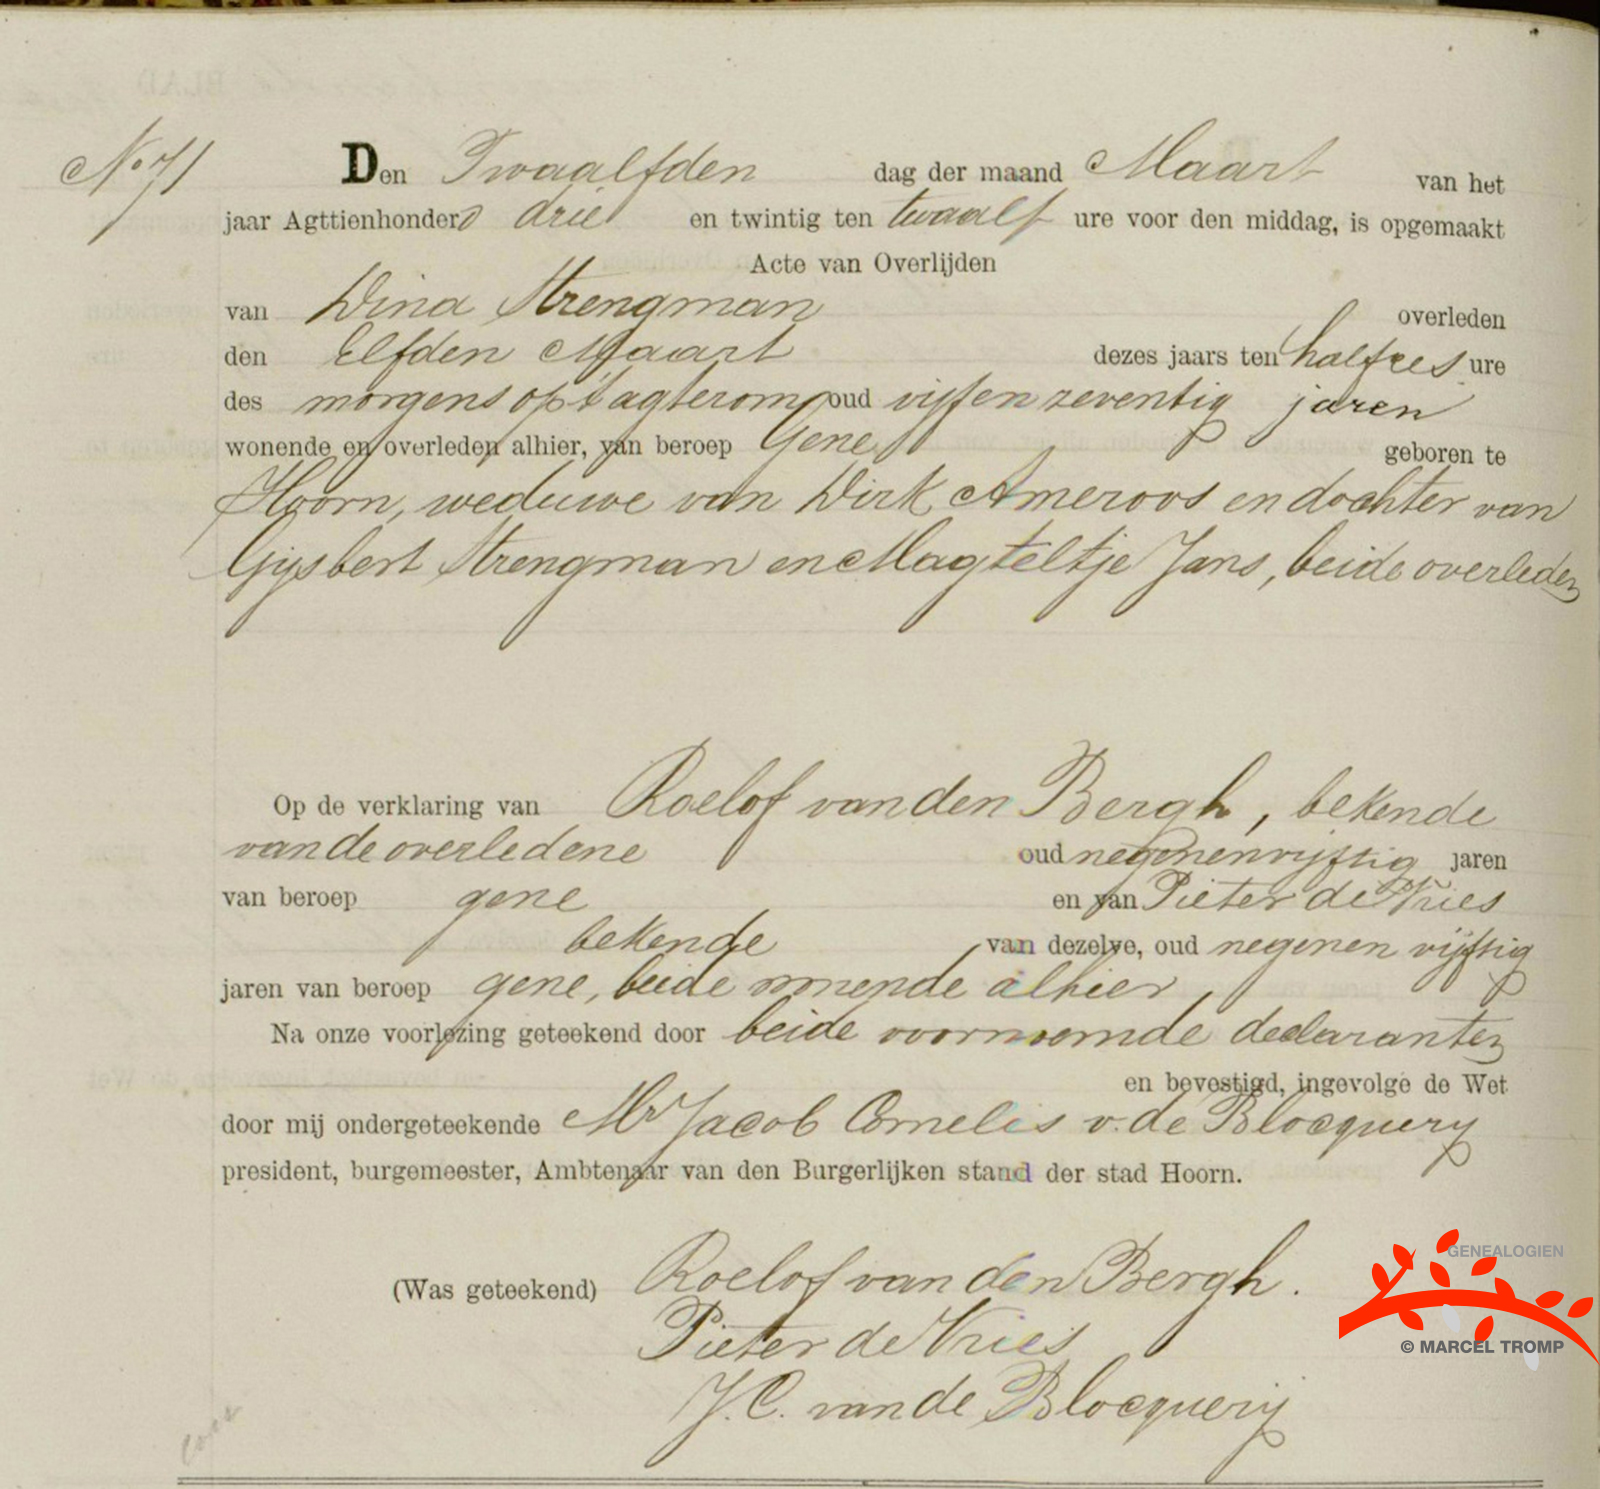 No 71
Den Twaalfden dag der maand Maart van het
jaar Agttienhonderd drie en twintig ten twaalf ure voor den middag, is opgemaakt
Acte van Overlijden
van Dina Strengman overleden
den Elfden Maart dezes jaars ten halfzes ure
des morgens op 't agterom oud vijf en zeventig jaren
wonende en overleden alhier, van beroep Gene geboren te
Hoorn, weduwe van Dirk Ameroos en dochter van
Gijsbert Strengman en Magteltje Jans, beide overleden
Op de verklaring van Roelof van den Bergh, bekende
van de overledene oud negenenvijftig jaren
van beroep gene en van Pieter de Vries
bekende van dezelve, oud negenen vijftig
jaren van beroep gene, beide wonende alhier
Na onze voorlezing geteekend door beide voornoemde declaranten
en bevestigd, ingevolge de Wet
door mij ondergeteekende Mr Jacob Cornelis v. de Blocquery
president, burgemeester, Ambtenaar van den Burgerlijken stand der stad Hoorn.
(Was geteekend) Roelof van den Bergh.
Pieter de Vries
J. C. van de Blocquerij
GENEALOGIEN
© MARCEL TROMP